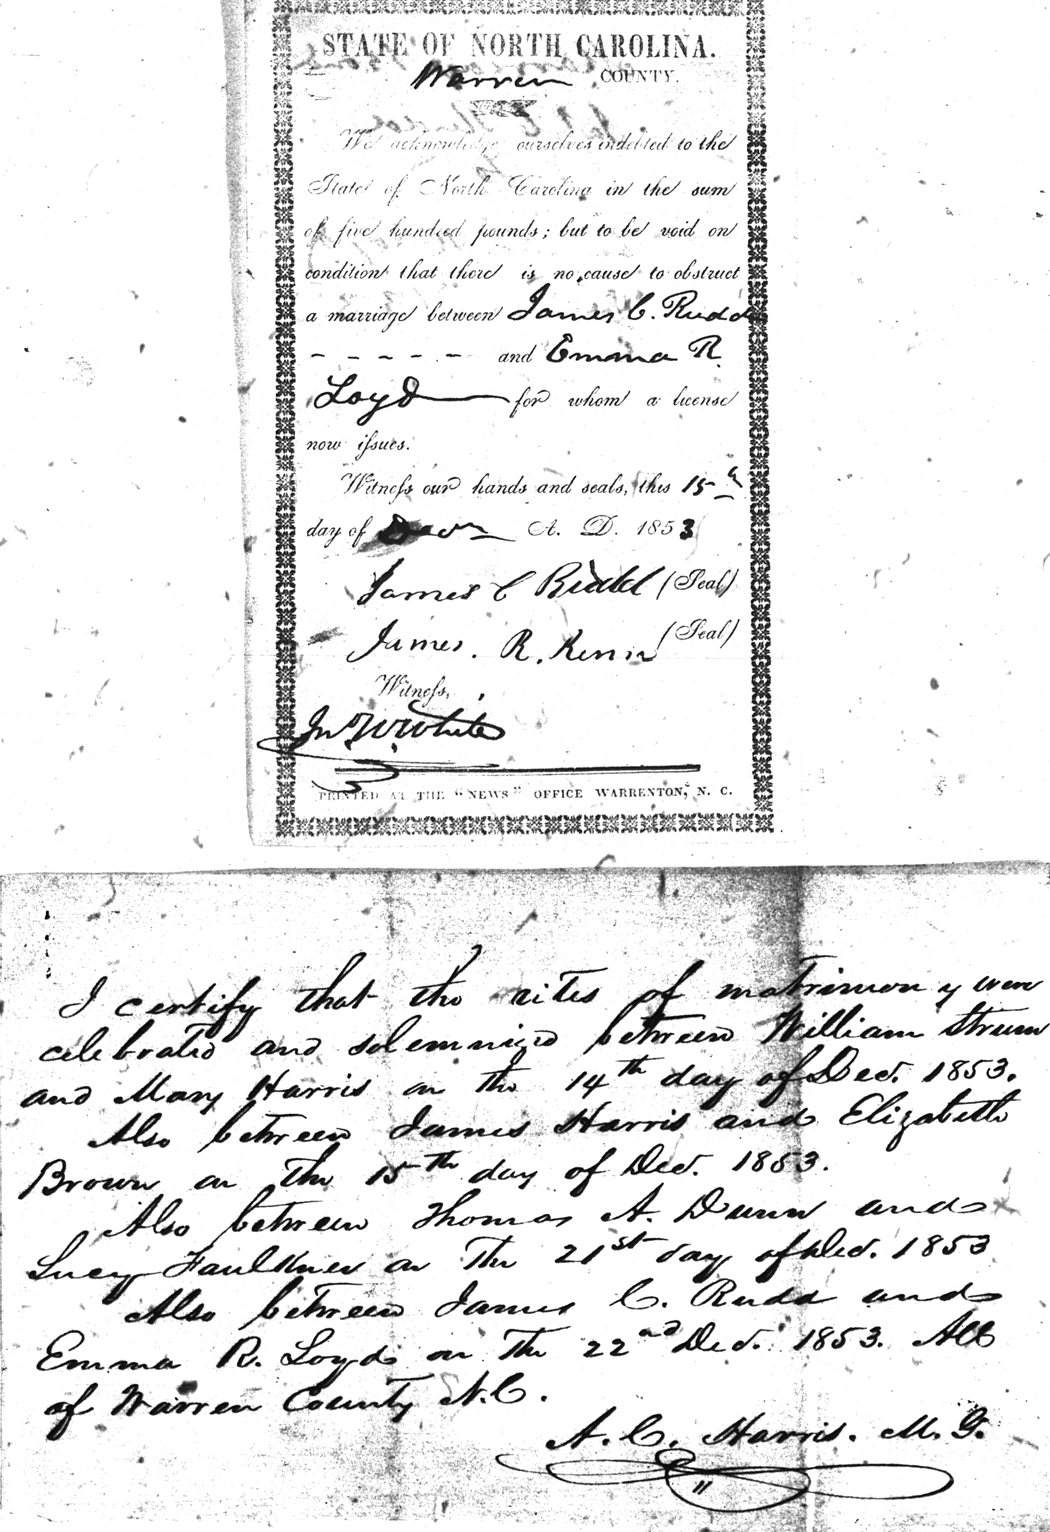 STATE OF NORTH CAROLINA.
Warren COUNTY.
We acknowledge ourselves indebted to the
State of North Carolina in the sum
of five hundred pounds; but to be void on
condition that there is no cause to obstruct
a marriage between James C. Rudd
- - - - - - and Emma R.
Loyd for whom a license
now issues.
Witness our hands and seals, this 15th
day of Decr A. D. 1853
James C Rudd (Seal)
James. R. (Seal)
Witness,
Jno W. White
PRINTED AT THE "NEWS" OFFICE WARRENTON, N. C.
I certify that the rites of matrimony were
celebrated and solemnized between William Strum
and Mary Harris on the 14th day of Dec. 1853.
Also between James Harris and Elizabeth
Brown on the 15th day of Dec. 1853.
Also between Thomas A. Dunn and
Lucy Faulkner on the 21st day of Dec. 1853
Also between James C. Rudd and
Emma R. Loyd on the 22nd Dec. 1853. All
of Warren County N.C.
A. C. Harris. M. G.